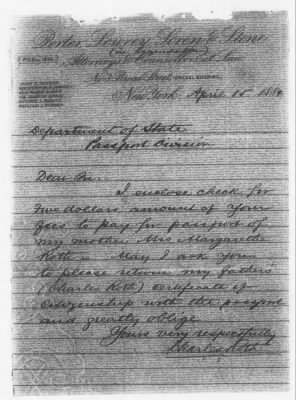 Porter, Lowrey, Soren & Stone
Attorneys & Counsellors at Law
No. 3 Broad Street, DREXEL BUILDING,
New York April 15 188
Department of State
Passport Division
Dear Sir.
I enclose check for
five dollars amount of your
fees to pay for passport of
my mother Mrs. Margaret
Roth. May I ask you
to please return my father's
(Charles Roth) certificate of
citizenship with the passport
and greatly oblige
Yours very respectfully
Charles Roth